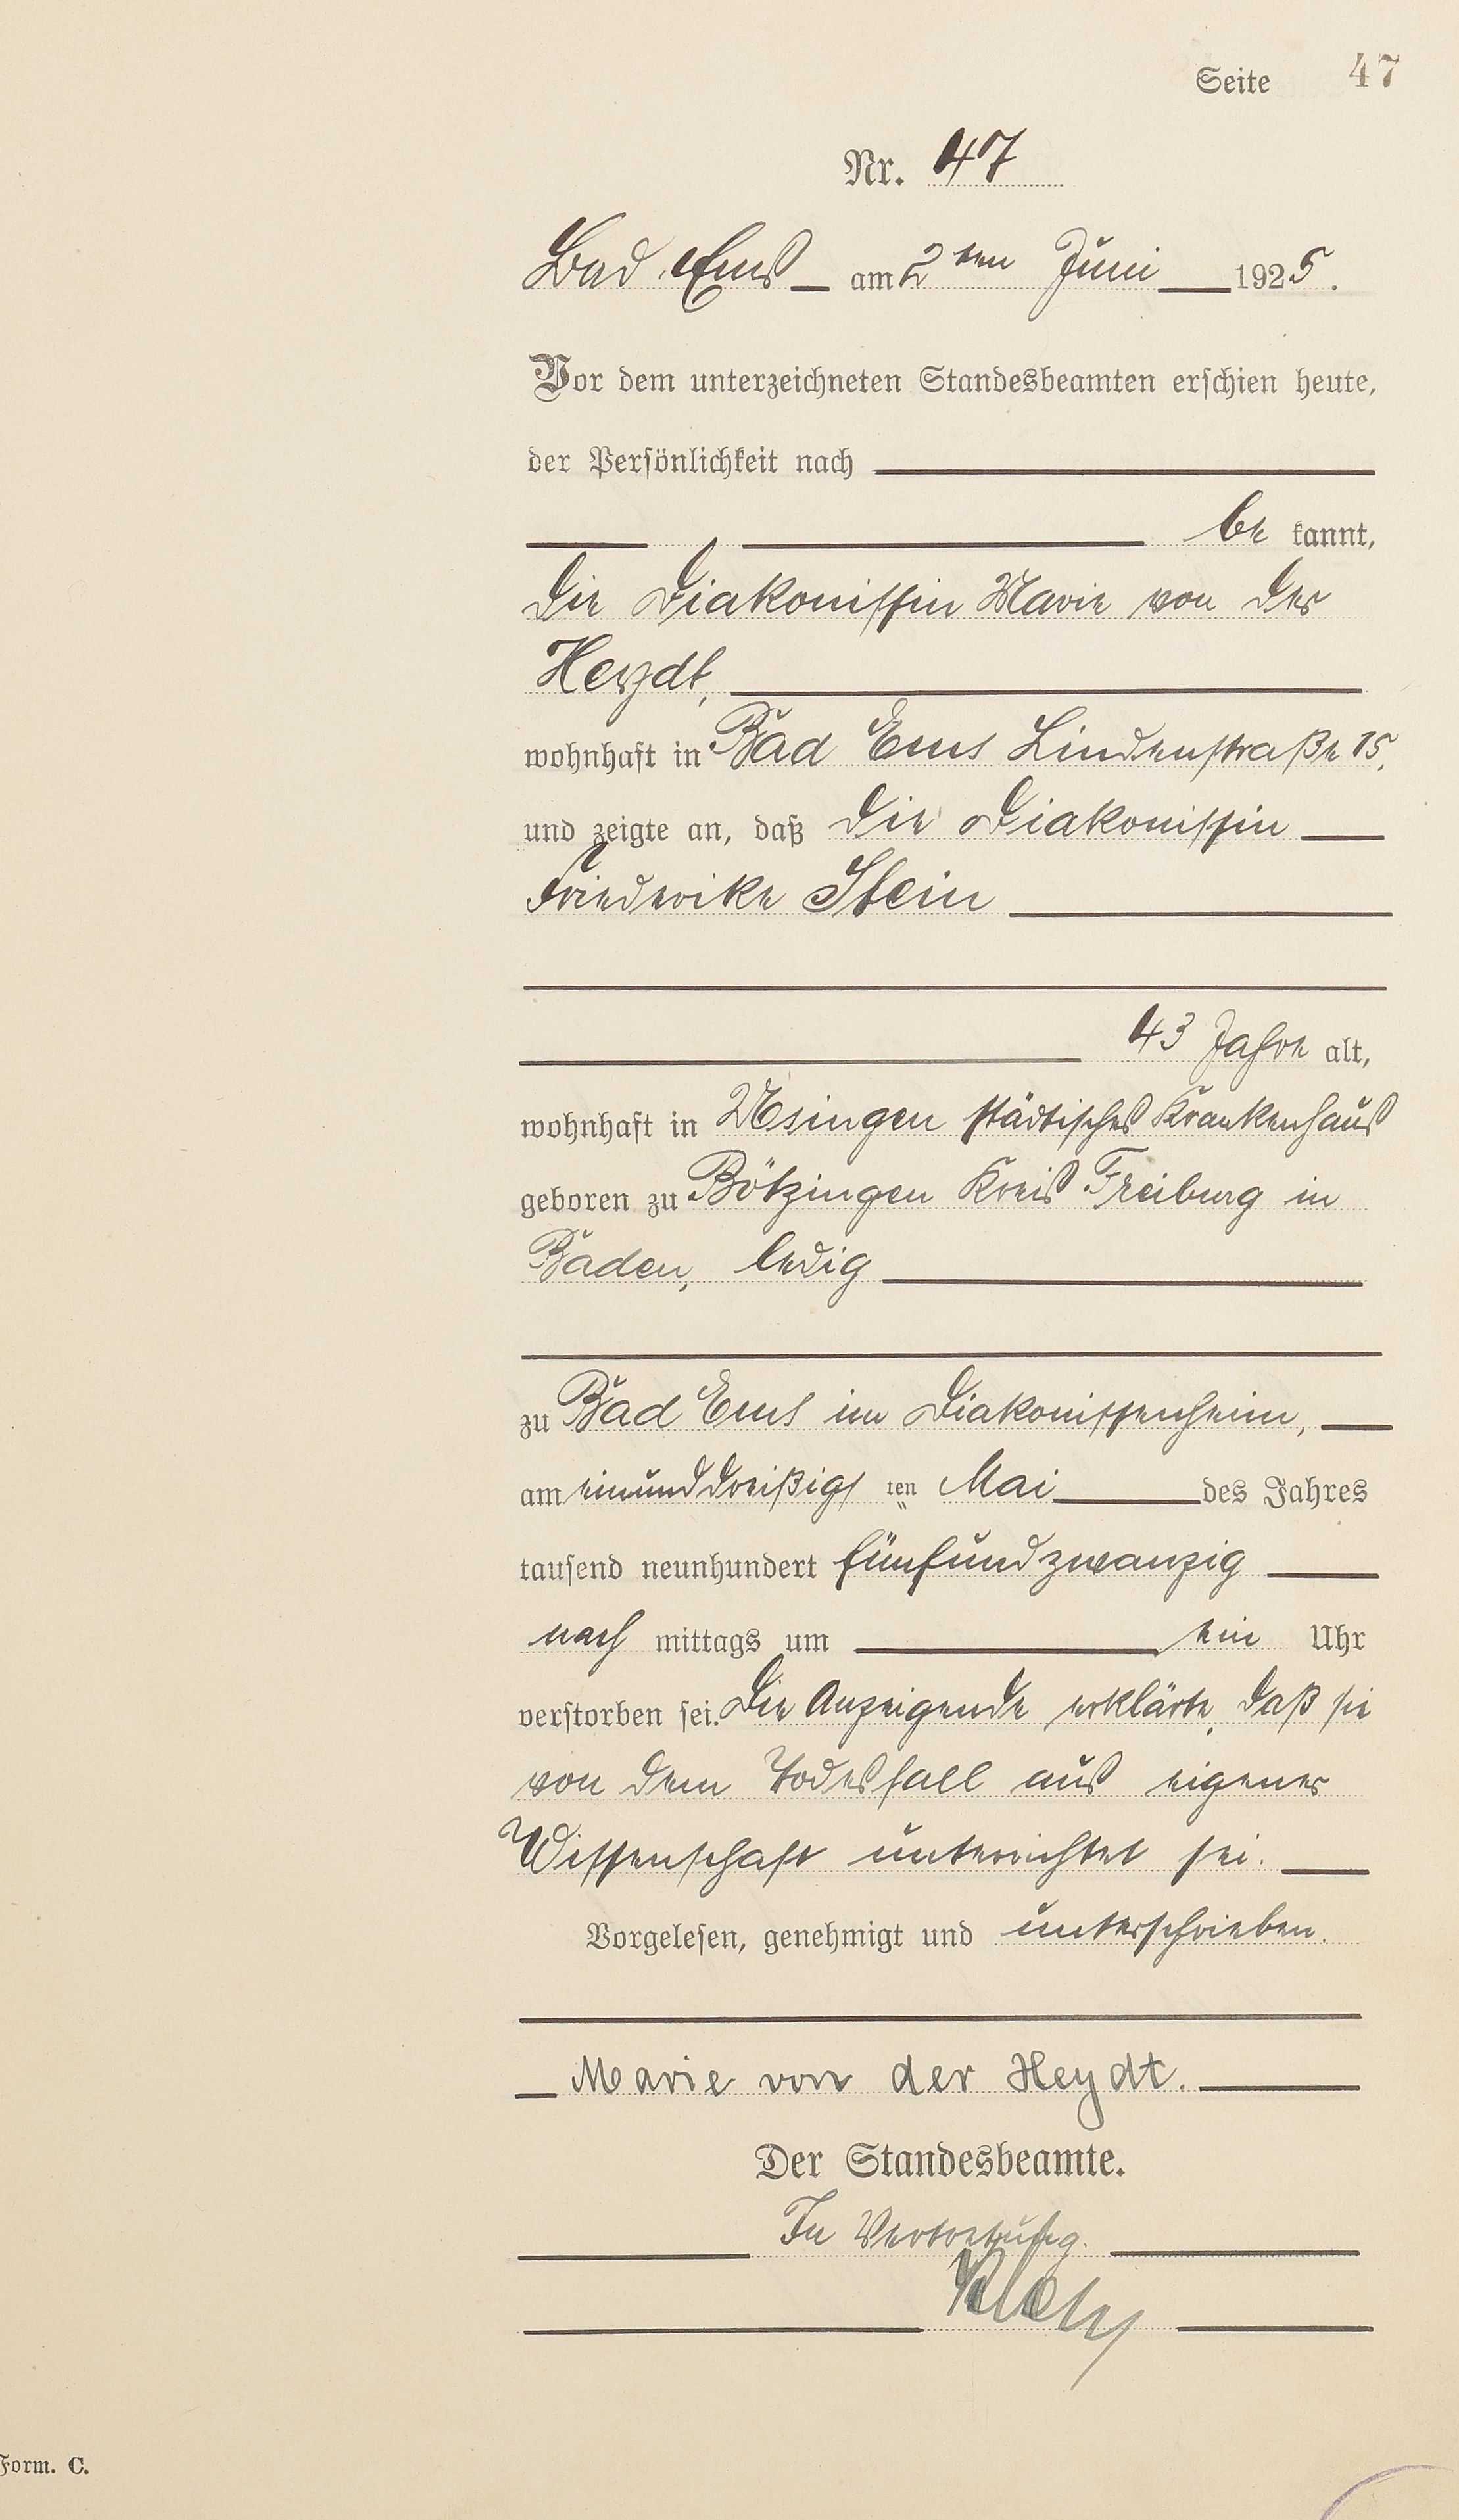 Seite 47
Nr. 47
Bad Ems am 2ten Juni 1925.
Vor dem unterzeichneten Standesbeamten erschien heute,
der Persönlichkeit nach
be kannt,
die Diakonissin Marie von der
Heydt,
wohnhaft in Bad Ems Lindenstraße 15,
und zeigte an, daß die Diakonissin
Friederike Stein
43 Jahre alt,
wohnhaft in Usingen städtisches Krankenhaus
geboren zu Bötzingen Kreis Freiburg in
Baden, ledig
zu Bad Ems im Diakonissenheim,
am einunddreißigs ten Mai des Jahres
tausend neunhundert fünfundzwanzig
nach mittags um ein Uhr
verstorben sei. Die Anzeigende erklärte, daß sie
von dem Todesfall aus eigener
Wissenschaft unterrichtet sei.
Vorgelesen, genehmigt und unterschrieben.
Marie von der Heydt.
Der Standesbeamte.
In Vertretung.
Form. C.